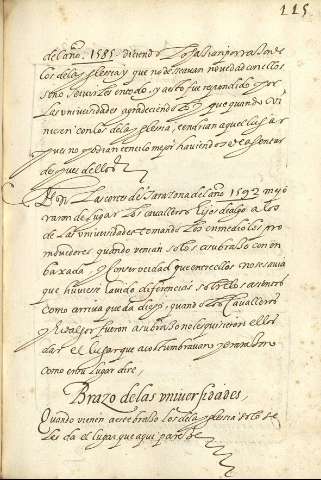 115
del año 1585 diciendo
los de la Iglesia y que no deseauan nouedad con ellos
sino seruirles en todo, y a esto fue respondido por
las vniuersidades agradeciendo que quando vi
niesen con los de la Iglesia, tendrian aquel lugar
pues no podian tenerlo mejor hauiendose de asentar
despues dellos
En las cortes de Taraçona del año 1592 mejo
raron de lugar los caualleros hijos dealgo a los
de las vniuersidades tomando los en medio los pro
mouedores quando venian solos a su braço con en
baxada, y con ser verdad que entre ellos no se sauia
que huuiese hauido diferencias sobre los asientos
como arriua queda dicho, quando los Caualleros
y hidalgos fueron a su braço no les quisieron ellos
dar el lugar que acostumbrauan
como en su lugar dire,
Brazo de las vniuersidades,
Quando vienen a este braço los de la yglesia solo se
les da el lugar que aqui parece